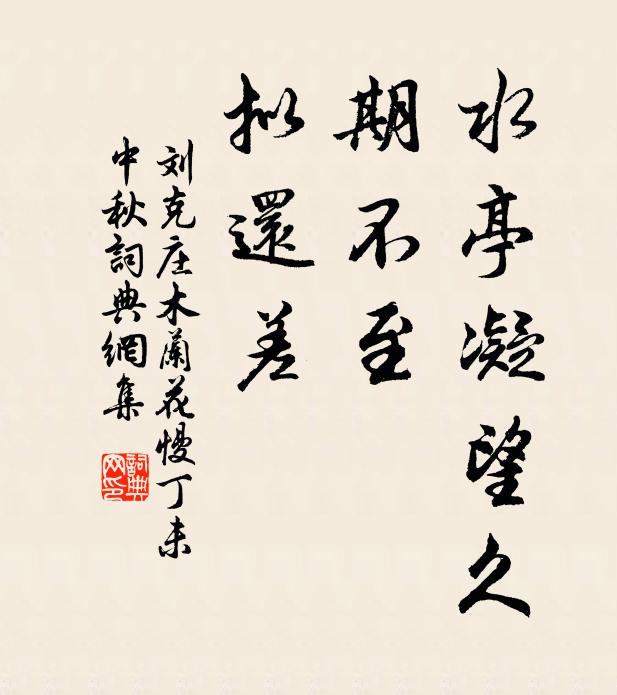 水亭凝望久
期不至
拟還差
刘克庄木蘭花慢丁未
中秋詞典網集
詞典
网印